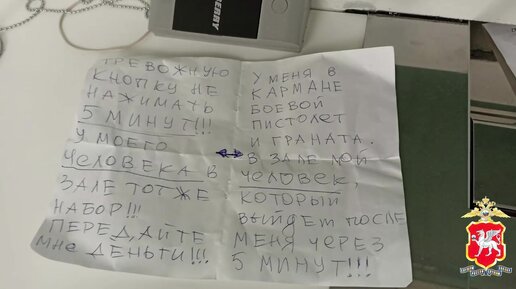 BERRY
ТРЕВОЖНУЮ
КНОПКУ НЕ
НАЖИМАТЬ
5 МИНУТ!!!
У МОЕГО
ЧЕЛОВЕКА В
ЗАЛЕ ТОТ ЖЕ
НАБОР!!!
ПЕРЕДАЙТЕ
МНЕ ДЕНЬГИ!!!
У МЕНЯ В
КАРМАНЕ
БОЕВОЙ
ПИСТОЛЕТ
И ГРАНАТА.
В ЗАЛЕ МОЙ
ЧЕЛОВЕК,
КОТОРЫЙ
ВЫЙДЕТ ПОСЛЕ
МЕНЯ ЧЕРЕЗ
5 МИНУТ!!!